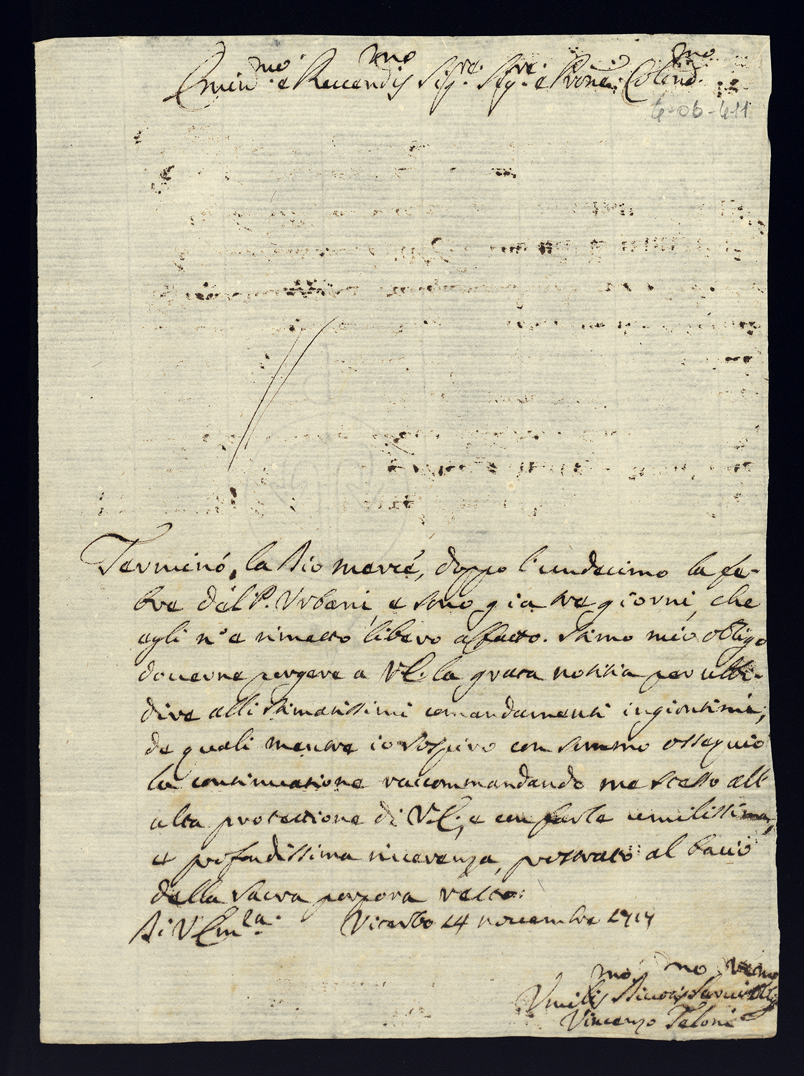 Emin.mo e Reverendis.mo Sig.re Sig.re e P.rone Colend.mo
6-06-611
Terminó, la Dio mercé, doppo l'undecimo la fe-
bre del P. Urbani, e sono gia tre giorni, che
egli n'e rimasto libero affatto. Stimo mio obligo
doverne porgere a V.E. la grata notitia per ubbi-
dire alli stimatissimi comandamenti ingiontimi,
de quali mentre io sospiro con sommo ossequio
la continuatione raccommandando me stesso all'
alta protettione di V.E., e con farle umilissima,
et profondissima riverenza, prostrato al bacio
della sacra porpora resto:
Di V. Em.za Viterbo 24 novembre 1717
Umilis.mo Divotis.mo Servit.
Vincenzo Teloni